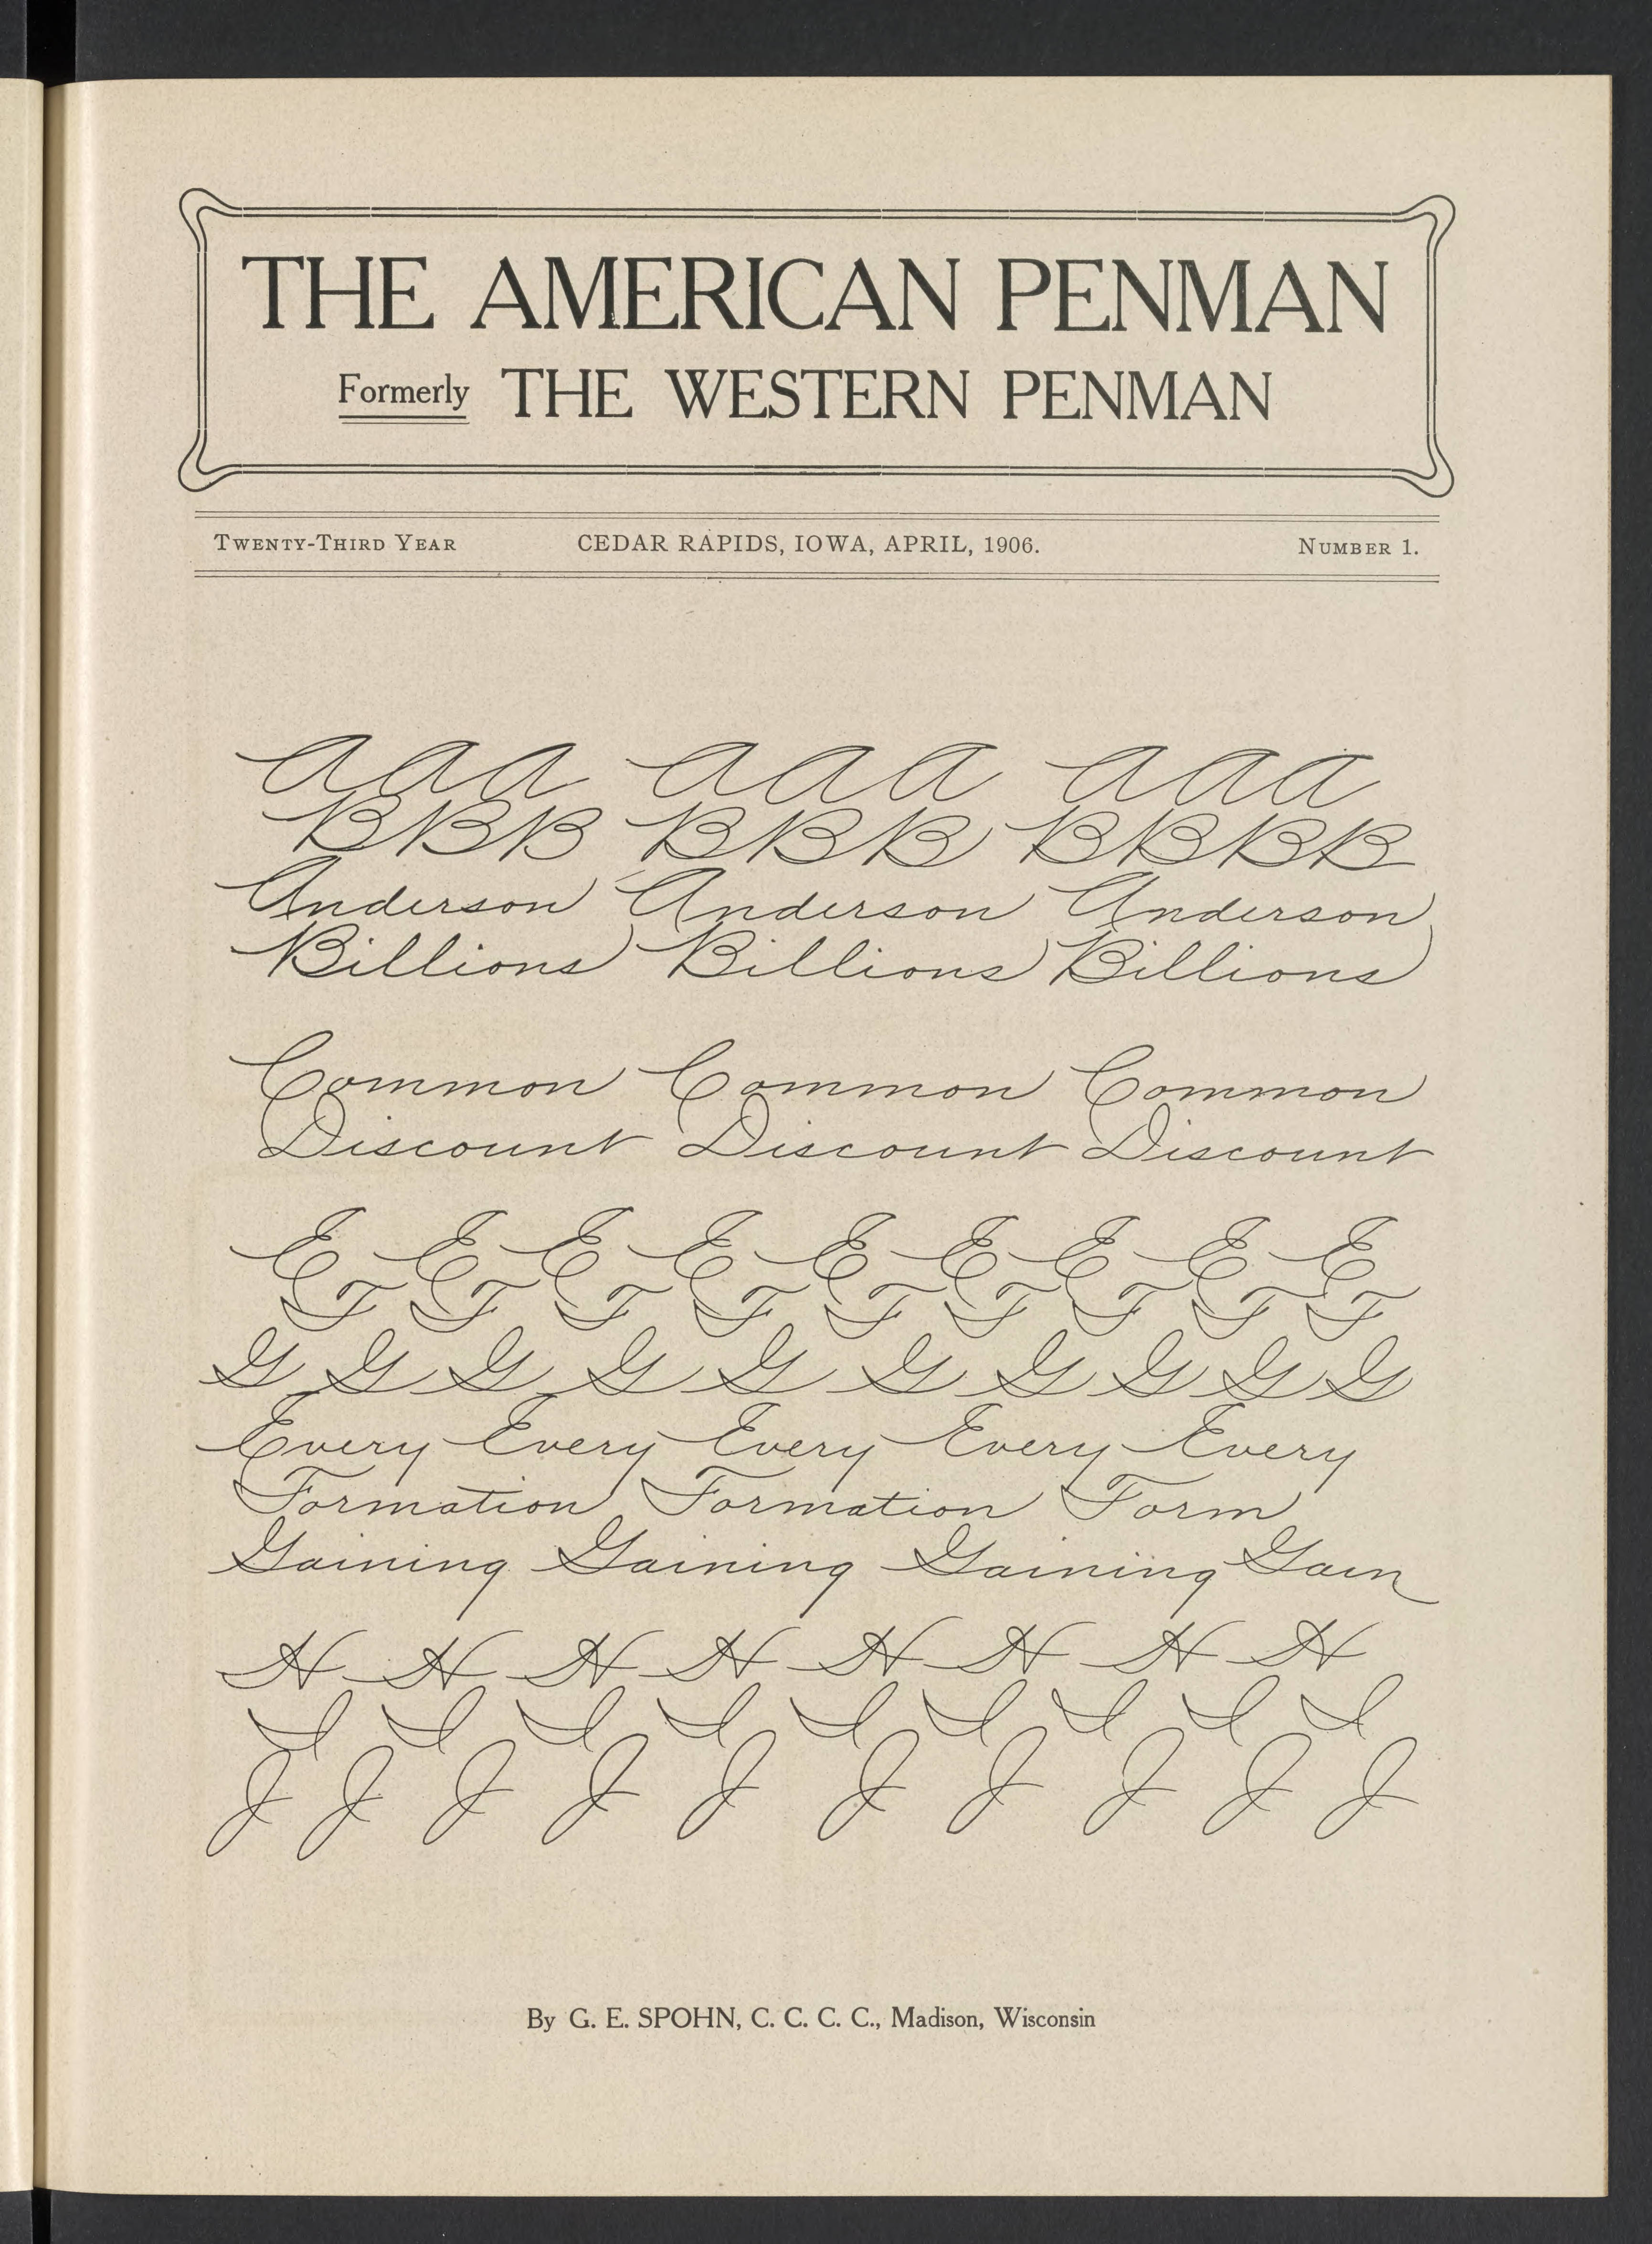 THE AMERICAN PENMAN
Formerly THE WESTERN PENMAN
TWENTY-THIRD YEAR CEDAR RAPIDS, IOWA, APRIL, 1906. NUMBER 1.
A A A A A A A A A
B B B B B B B B B B
Anderson Anderson Anderson
Billions Billions Billions
Common Common Common
Discount Discount Discount
E E E E E E E E E
F F F F F F F F F
G G G G G G G G G G
Every Every Every Every Every
Formation Formation Form
Gaining Gaining Gaining Gain
H H H H H H H H
I I I I I I I I I
J J J J J J J J J J
By G. E. SPOHN, C. C. C. C., Madison, Wisconsin